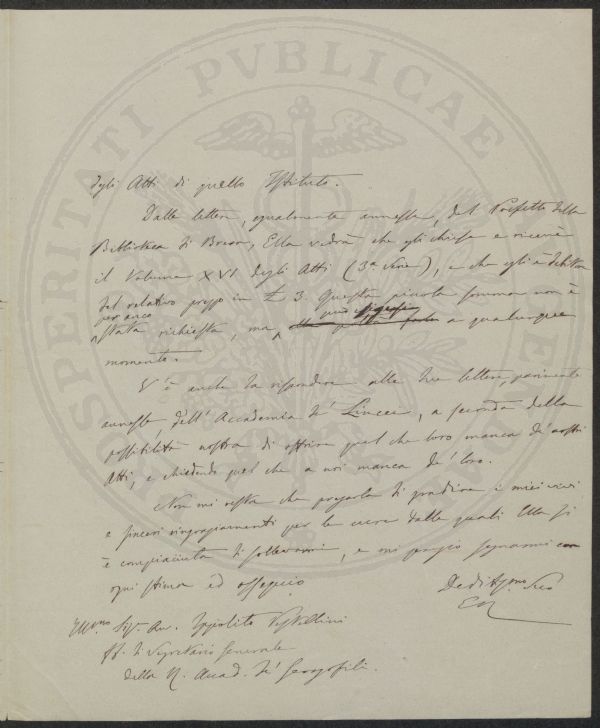 PROSPERITATI PVBLICAE
degli Atti di quello Istituto.
Dalle lettere, egualmente annesse, del Prefetto della
Biblioteca di Brera, Ella vedrà che gli chiese e ricevè
il Volume XVI degli Atti (3ª Serie), e che egli è debitore
del relativo prezzo in £ 3. Questa piccola somma non è
per anco
stata richiesta, ma può a qualunque
momento.
V'è anche da rispondere alle due lettere, parimente
annesse, dell'Accademia de' Lincei, a seconda della
possibilità nostra di offrire quel che loro manca de' nostri
Atti, e chiedendo quel che a noi manca de' loro.
Non mi resta che pregarla di gradire i miei vivi
e sinceri ringraziamenti per le cure dalle quali Ella si
è compiaciuta di sollevarmi, e mi pregio segnarmi con
ogni stima ed ossequio
Dedit.mo Suo
Ill.mo Sig. Av. Ippolito
ff. di Segretario Generale
della R. Accad. de' Georgofili.